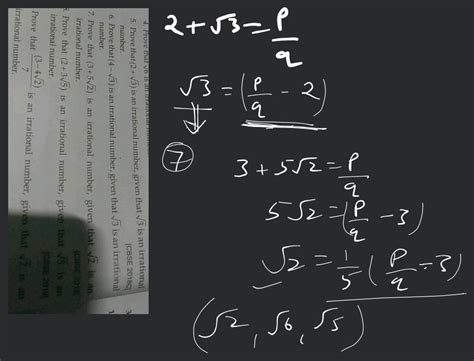 4. Prove that √6 is an irrational number.
5. Prove that (2 + √3) is an irrational number, given that √3 is an irrational
number. [CBSE 2018C]
6. Prove that (4 − √3) is an irrational number, given that √3 is an irrational
number.
7. Prove that (3 + 5√2) is an irrational number, given that √2 is an
irrational number. [CBSE 2018]
8. Prove that (2 + 3√5) is an irrational number, given that √5 is an
irrational number.
Prove that (3 − 4√2)/7 is an irrational number, given that √2 is an
irrational number.
2 + √3 = p/q
√3 = (p/q − 2)
7
3 + 5√2 = p/q
5√2 = (p/q − 3)
√2 = 1/5 (p/q − 3)
(√2, √6, √5)